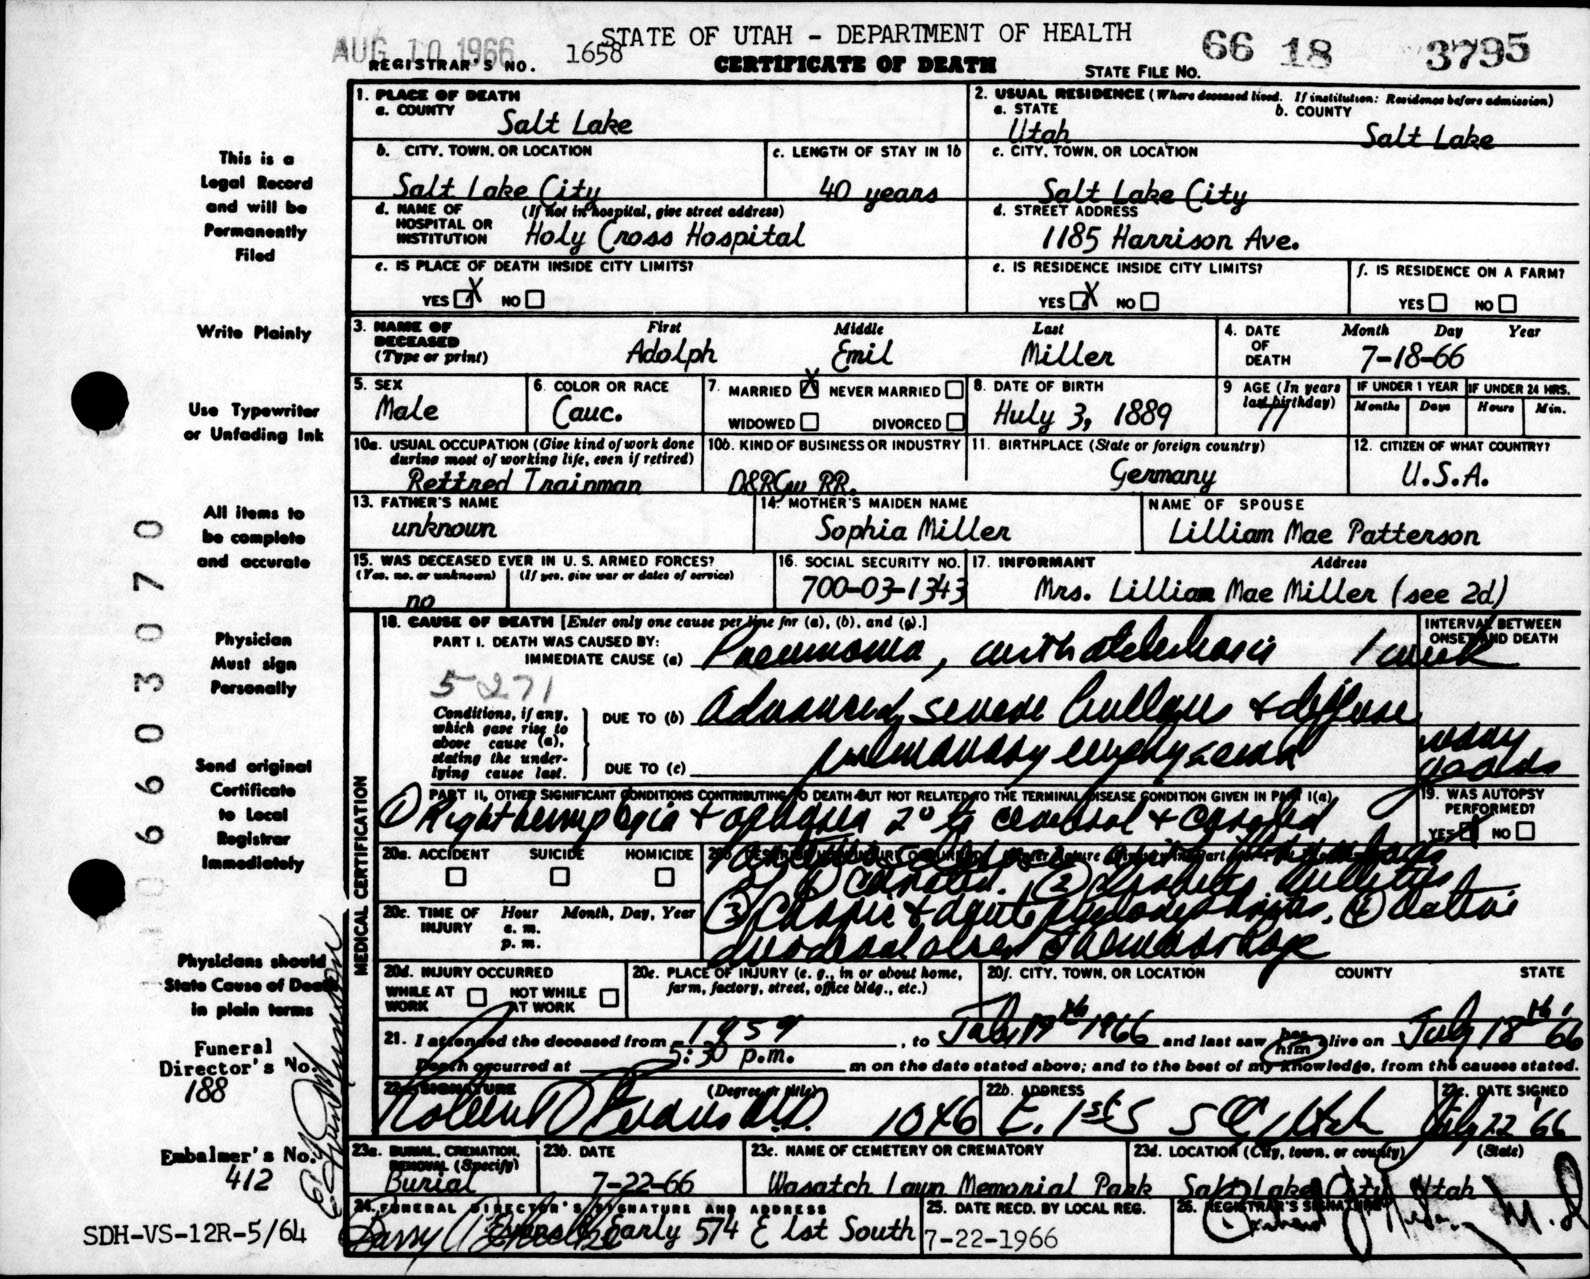 AUG 10 1966
STATE OF UTAH - DEPARTMENT OF HEALTH
REGISTRAR'S NO. 1658
CERTIFICATE OF DEATH
STATE FILE NO. 66 18 3795
This is a
Legal Record
and will be
Permanently
Filed
Write Plainly
Use Typewriter
or Unfading Ink
All items to
be complete
and accurate
Physician
Must sign
Personally
Send original
Certificate
to Local
Registrar
Immediately
Physicians should
State Cause of Death
in plain terms
Funeral
Director's No.
188
Embalmer's No.
412
SDH-VS-12R-5/64
0660 3070
1. PLACE OF DEATH
a. COUNTY
Salt Lake
2. USUAL RESIDENCE (Where deceased lived. If institution: Residence before admission)
a. STATE
Utah
b. COUNTY
Salt Lake
b. CITY, TOWN, OR LOCATION
Salt Lake City
c. LENGTH OF STAY IN 1b
40 years
c. CITY, TOWN, OR LOCATION
Salt Lake City
d. NAME OF HOSPITAL OR INSTITUTION
(If not in hospital, give street address)
Holy Cross Hospital
d. STREET ADDRESS
1185 Harrison Ave.
e. IS PLACE OF DEATH INSIDE CITY LIMITS?
YES X NO
e. IS RESIDENCE INSIDE CITY LIMITS?
YES X NO
f. IS RESIDENCE ON A FARM?
YES NO
3. NAME OF DECEASED
(Type or print)
First Middle Last
Adolph Emil Miller
4. DATE OF DEATH
Month Day Year
7-18-66
5. SEX
Male
6. COLOR OR RACE
Cauc.
7. MARRIED X NEVER MARRIED
WIDOWED DIVORCED
8. DATE OF BIRTH
Huly 3, 1889
9 AGE (In years last birthday)
77
IF UNDER 1 YEAR
Months Days
IF UNDER 24 HRS.
Hours Min.
10a. USUAL OCCUPATION (Give kind of work done during most of working life, even if retired)
Rettred Trainman
10b. KIND OF BUSINESS OR INDUSTRY
D&RGW RR.
11. BIRTHPLACE (State or foreign country)
Germany
12. CITIZEN OF WHAT COUNTRY?
U.S.A.
13. FATHER'S NAME
unknown
14. MOTHER'S MAIDEN NAME
Sophia Miller
NAME OF SPOUSE
Lilliam Mae Patterson
15. WAS DECEASED EVER IN U. S. ARMED FORCES?
(Yes, no, or unknown) (If yes, give war or dates of service)
no
16. SOCIAL SECURITY NO.
700-03-1343
17. INFORMANT Address
Mrs. Lillian Mae Miller (see 2d)
MEDICAL CERTIFICATION
18. CAUSE OF DEATH [Enter only one cause per line for (a), (b), and (c).]
INTERVAL BETWEEN ONSET AND DEATH
PART I. DEATH WAS CAUSED BY:
IMMEDIATE CAUSE (a) Pneumonia, with atelectasis 1 week
5271
Conditions, if any, which gave rise to above cause (a), stating the underlying cause last.
DUE TO (b) Advanced, severe bullous & diffuse
DUE TO (c) pulmonary emphysema
many years
PART II. OTHER SIGNIFICANT CONDITIONS CONTRIBUTING TO DEATH BUT NOT RELATED TO THE TERMINAL DISEASE CONDITION GIVEN IN PART I(a)
① Right hemiplegia & aphasia 2° to cerebral & carotid
19. WAS AUTOPSY PERFORMED?
YES NO
20a. ACCIDENT SUICIDE HOMICIDE
② diabetes mellitus
③ Chronic & acute pyelonephritis, ④ active
duodenal ulcer hemorrhage
20c. TIME OF INJURY
Hour Month, Day, Year
a. m.
p. m.
20d. INJURY OCCURRED
WHILE AT WORK NOT WHILE AT WORK
20e. PLACE OF INJURY (e. g., in or about home, farm, factory, street, office bldg., etc.)
20f. CITY, TOWN, OR LOCATION COUNTY STATE
21. I attended the deceased from 1959, to July 19th 1966 and last saw him alive on July 18th '66
Death occurred at 5:30 p.m. m on the date stated above; and to the best of my knowledge, from the causes stated.
22a. SIGNATURE (Degree or title)
Robert D Evans M.D.
22b. ADDRESS
1046 E. 1st S SLC, Utah
22c. DATE SIGNED
July 22 '66
23a. BURIAL, CREMATION, REMOVAL (Specify)
Burial
23b. DATE
7-22-66
23c. NAME OF CEMETERY OR CREMATORY
Wasatch Lawn Memorial Park
23d. LOCATION (City, town, or county) (State)
Salt Lake City Utah
24. FUNERAL DIRECTOR'S SIGNATURE AND ADDRESS
Evans & Early 574 E 1st South
25. DATE RECD. BY LOCAL REG.
7-22-1966
26. REGISTRAR'S SIGNATURE
M. D